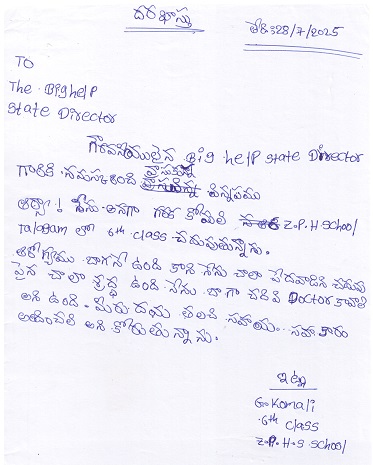 దరఖాస్తు
తేది:28/7/2025
TO
The Bighelp
State Director
గౌరవనీయులైన Big help state Director
గారికి నమస్కరించి వ్రాసుకున్న
విన్నపము
ఆర్యా! నేను అనగా గరిక కోమలి Z.P.H School
Talagam లో 6th class చదువుతున్నాను.
ఆరోగ్యము బాగానే ఉంది కాని నేను చాలా పేదవాడిని చదువు
పైన చాలా శ్రద్ధ ఉంది నేను బాగా చదివి Doctor కావాలి
అని ఉంది. మీరు దయ తలచి సహాయం సహకారం
అందించాలి అని కోరుతున్నాను.
ఇట్లు
G. Komali
6th class
Z.P.H.S School